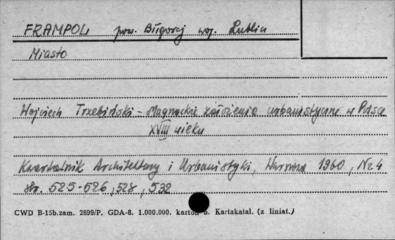 FRAMPOL pow. Biłgoraj woj. Lublin
Miasto
Wojciech Trzebiński - Magnackie założenia urbanistyczne w Polsce
XVIII wieku
Kwartalnik Architektury i Urbanistyki, Warszawa 1960, Nr 4
str. 525-526, 528, 532
CWD B-15b.zam. 2899/P. GDA-8. 1.000.000. karton b. Kartskatal. (z liniat.)